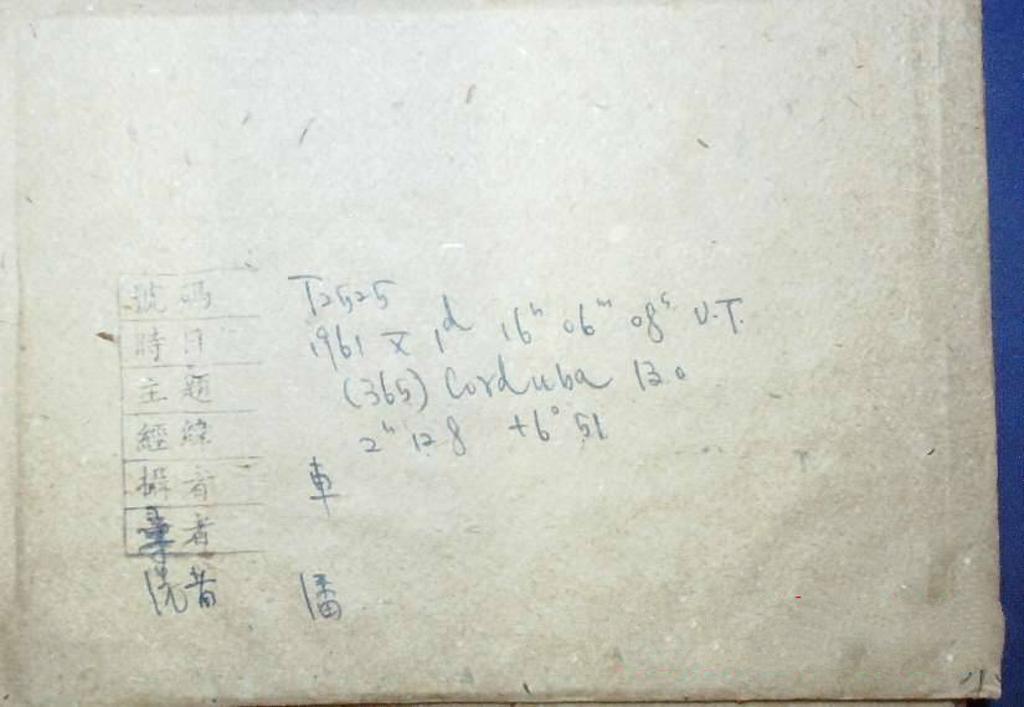 號碼 T2525
時日 1961 X 1ᵈ 16ʰ 06ᵐ 08ˢ U.T.
主題 (365) Corduba 13.0
經緯 2ʰ 12.8 +6° 51
攝者 車
者
洗者 潘